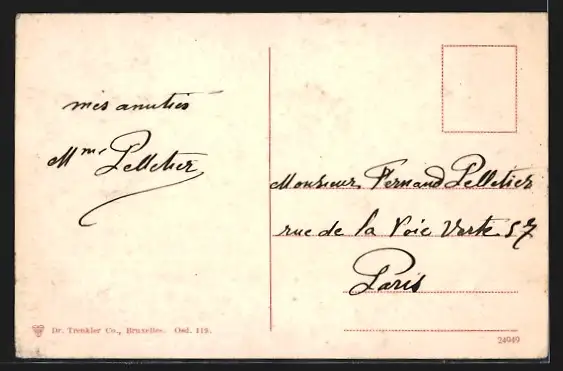 mes amitiés
Mme Pelletier
Monsieur Fernand Pelletier
rue de la Voie Verte 57
Paris
Dr. Trenkler Co., Bruxelles. Osd. 119.
24949